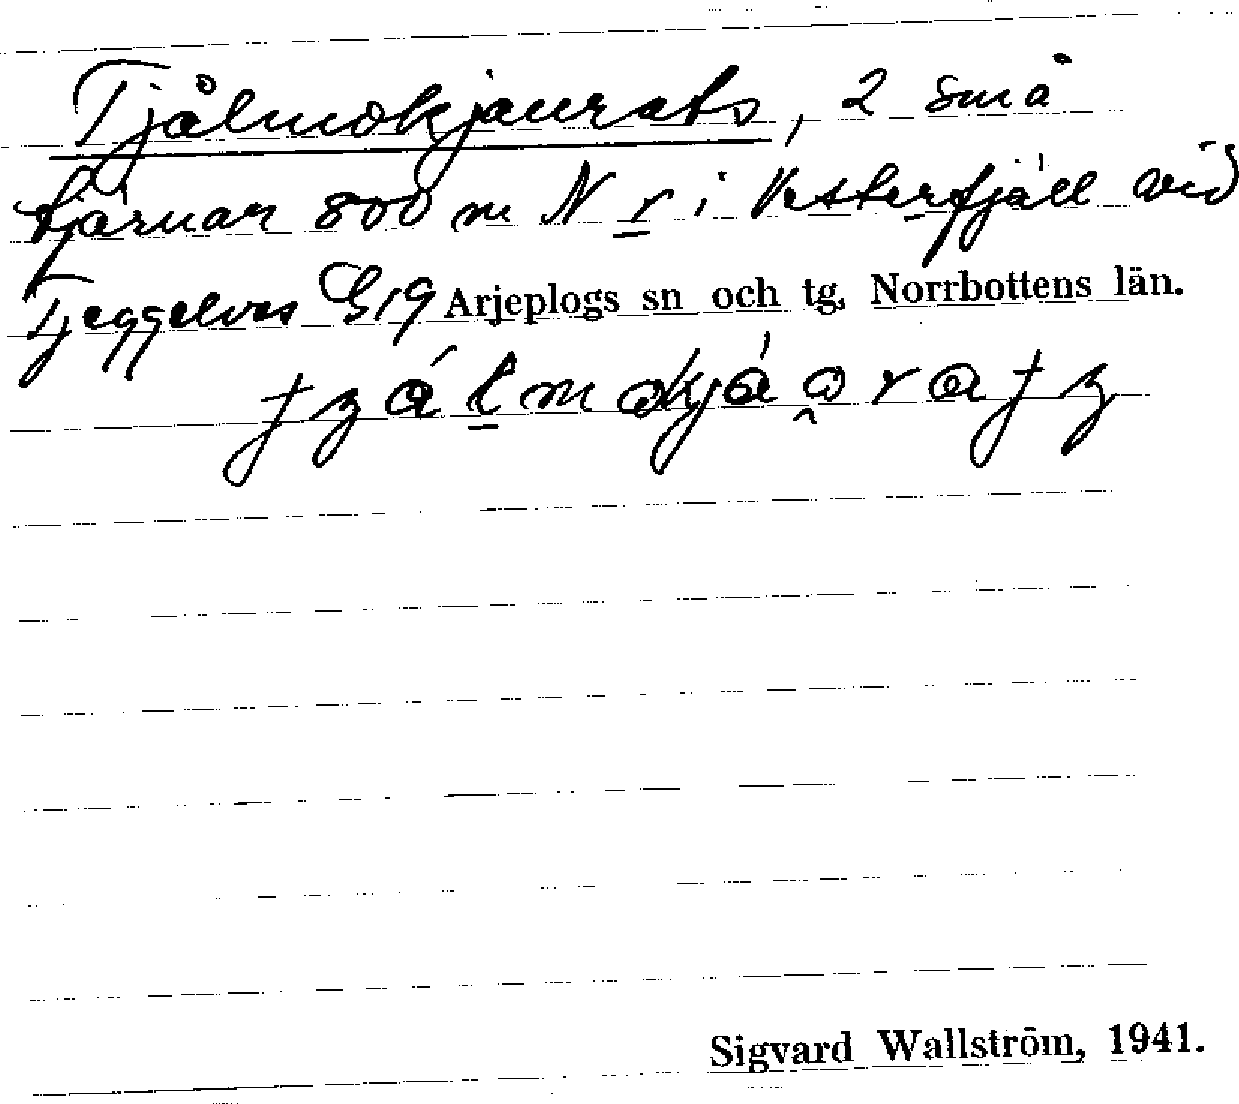 Tjålmokjaurats, 2 små
tjärnar 800 m N r i Västerfjäll vid
Tjeggelvas E19 Arjeplogs sn och tg, Norrbottens län.
Sigvard Wallström, 1941.